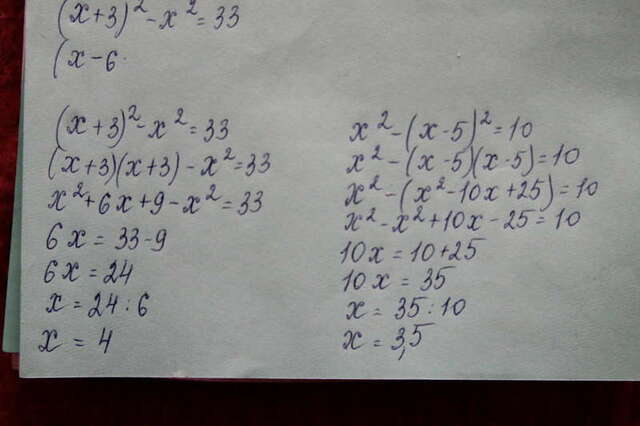 (x+3)² - x² = 33
(x - 6
(x+3)² - x² = 33
(x+3)(x+3) - x² = 33
x² + 6x + 9 - x² = 33
6x = 33 - 9
6x = 24
x = 24 : 6
x = 4
x² - (x-5)² = 10
x² - (x-5)(x-5) = 10
x² - (x² - 10x + 25) = 10
x² - x² + 10x - 25 = 10
10x = 10 + 25
10x = 35
x = 35 : 10
x = 3,5